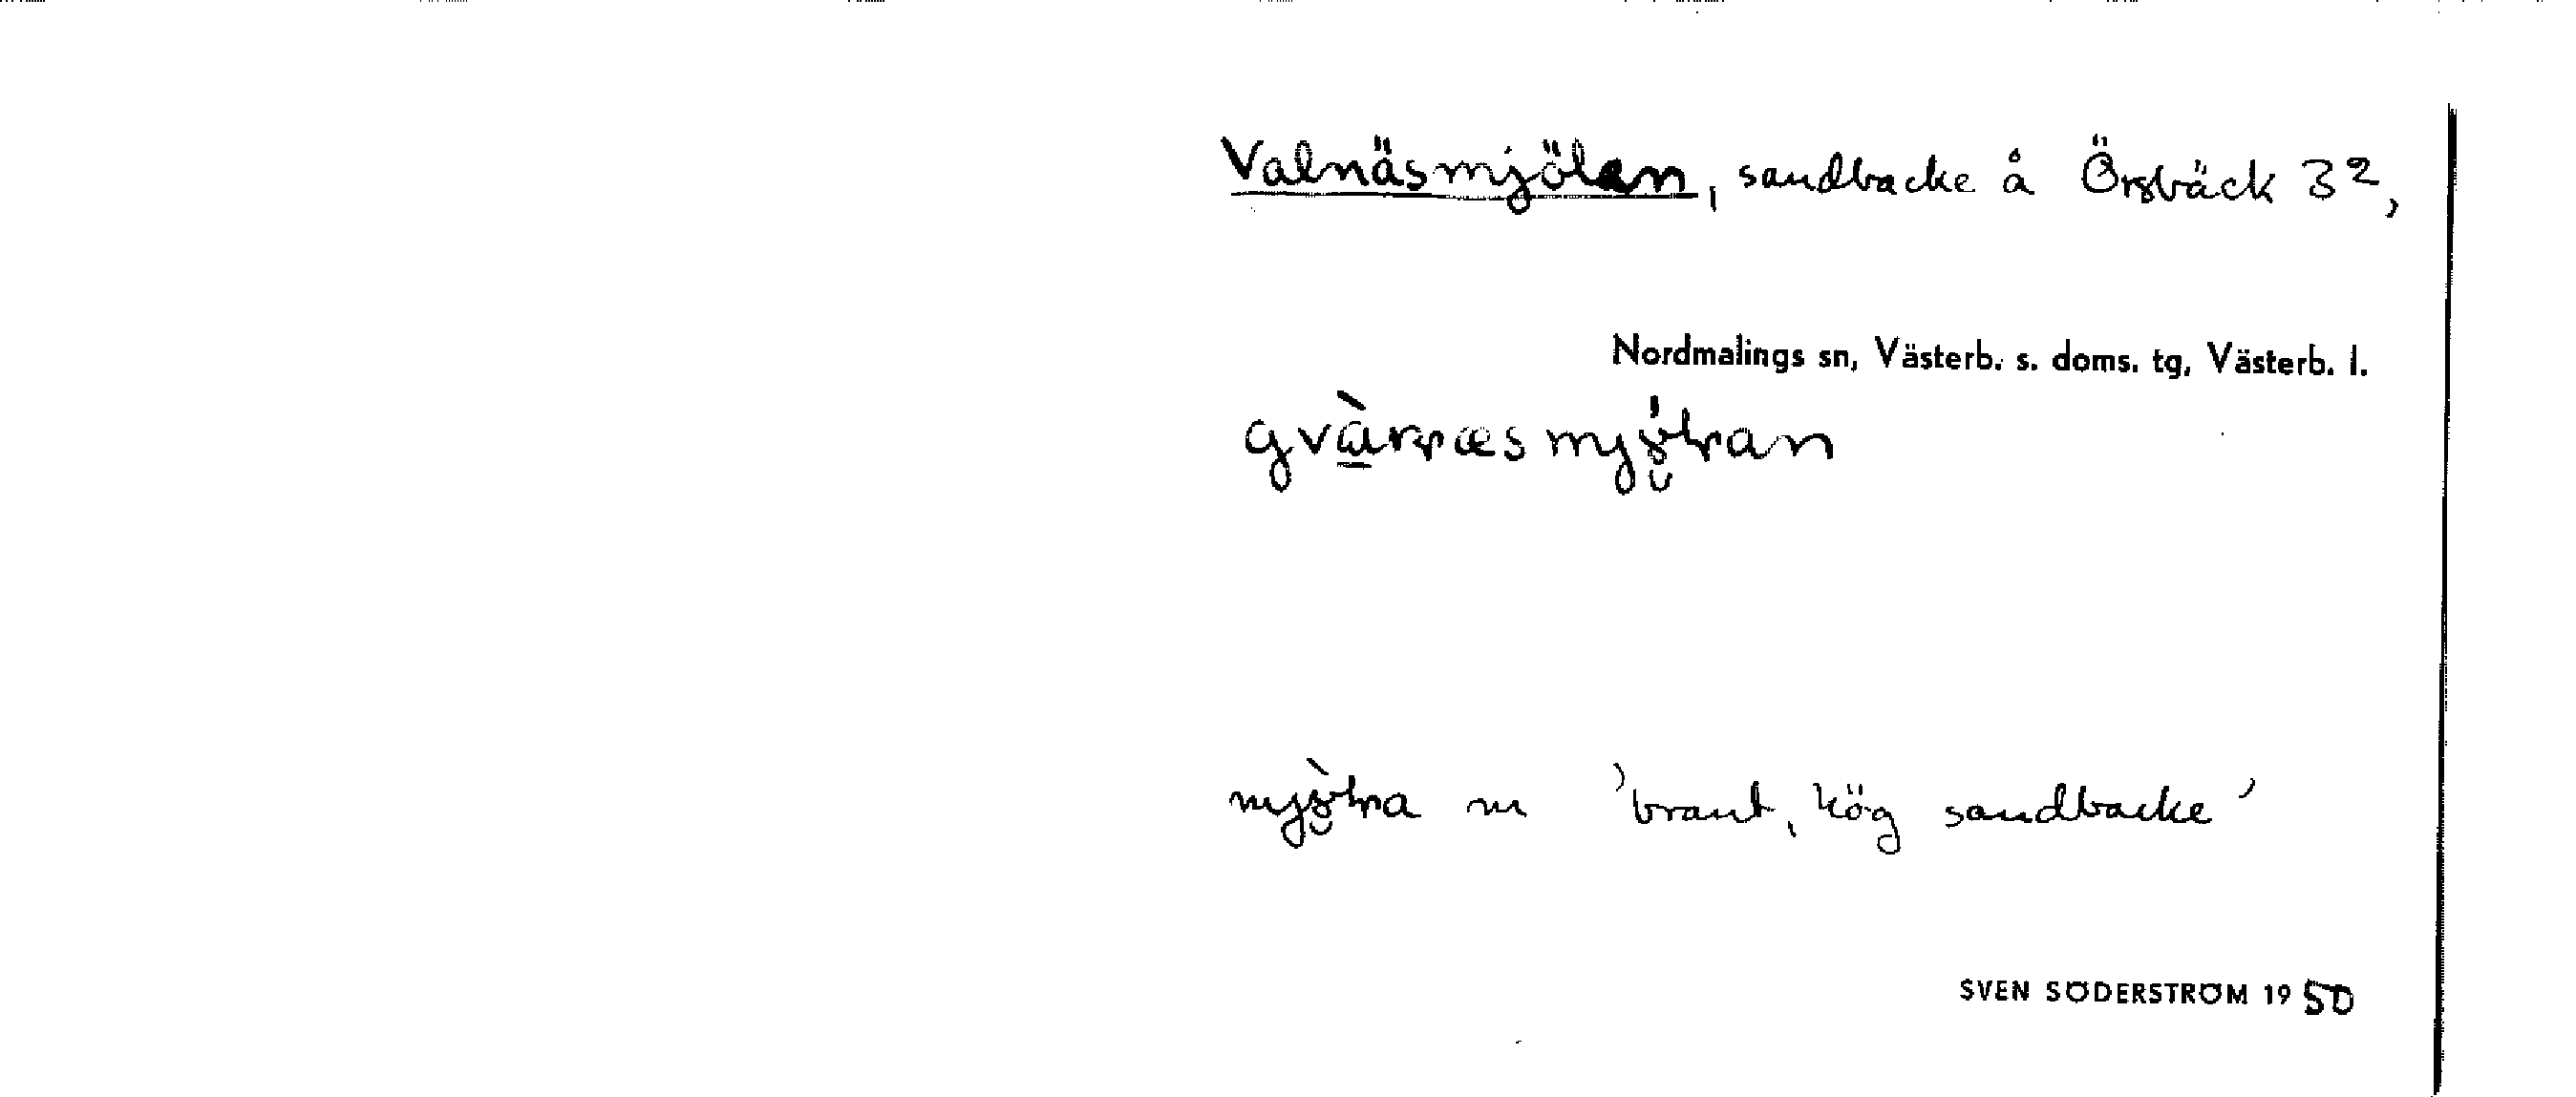 Valnäsmjölen, sandbacke å Örsbäck 3²,
Nordmalings sn, Västerb. s. doms. tg, Västerb. l.
m 'brant, hög sandbacke'
SVEN SÖDERSTRÖM 1950